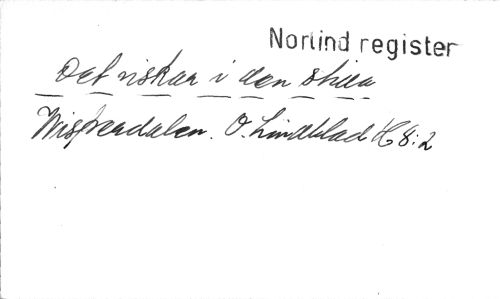 Norlind register
Det viskar i den stilla
Wisperdalen. O. Lindblad H 8:2